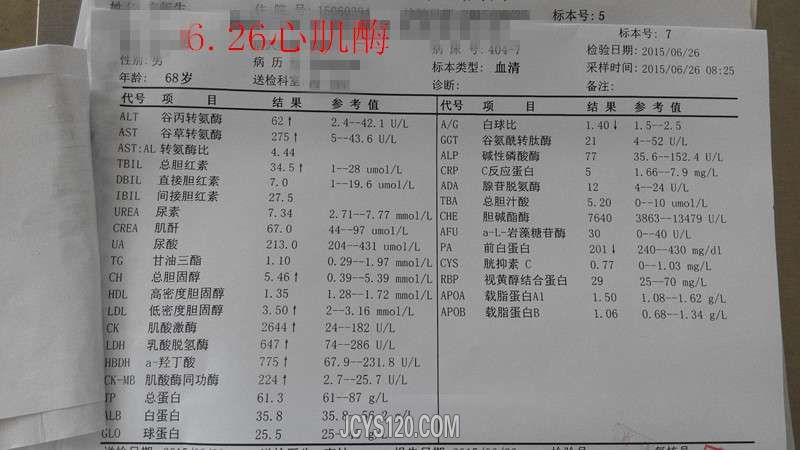 住 院 号: 15060394
标本号: 5
6.26心肌酶
标本号: 7
病 床 号: 404-7
检验日期: 2015/06/26
性别: 男
病 历
标本类型: 血清
采样时间: 2015/06/26 08:25
年龄: 68岁
送检科室
诊断:
备注:
代号 项 目 结 果 参 考 值
ALT 谷丙转氨酶 62↑ 2.4--42.1 U/L
AST 谷草转氨酶 275↑ 5--43.6 U/L
AST:AL 转氨酶比 4.44
TBIL 总胆红素 34.5↑ 1--28 umol/L
DBIL 直接胆红素 7.0 1--19.6 umol/L
IBIL 间接胆红素 27.5
UREA 尿素 7.34 2.71--7.77 mmol/L
CREA 肌酐 67.0 44--97 umol/L
UA 尿酸 213.0 204--431 umol/L
TG 甘油三酯 1.10 0.29--1.97 mmol/L
CH 总胆固醇 5.46↑ 0.39--5.39 mmol/L
HDL 高密度胆固醇 1.35 1.28--1.72 mmol/L
LDL 低密度胆固醇 3.50↑ 2--3.16 mmol/L
CK 肌酸激酶 2644↑ 24--182 U/L
LDH 乳酸脱氢酶 647↑ 74--286 U/L
HBDH a-羟丁酸 775↑ 67.9--231.8 U/L
CK-MB 肌酸酶同功酶 224↑ 2.7--25.7 U/L
TP 总蛋白 61.3 61--87 g/L
ALB 白蛋白 35.8
GLO 球蛋白 25.5
代号 项 目 结 果 参 考 值
A/G 白球比 1.40↓ 1.5--2.5
GGT 谷氨酰转肽酶 21 4--52 U/L
ALP 碱性磷酸酶 77 35.6--152.4 U/L
CRP C反应蛋白 5 1.66--7.9 mg/L
ADA 腺苷脱氨酶 12 4--24 U/L
TBA 总胆汁酸 5.20 0--10 umol/L
CHE 胆碱酯酶 7640 3863--13479 U/L
AFU a-L-岩藻糖苷酶 30 0--40 U/L
PA 前白蛋白 201↓ 240--430 mg/dl
CYS 胱抑素 C 0.77 0--1.03 mg/L
RBP 视黄醇结合蛋白 29 25--70 mg/L
APOA 载脂蛋白A1 1.50 1.08--1.62 g/L
APOB 载脂蛋白B 1.06 0.68--1.34 g/L
JCYS120.COM